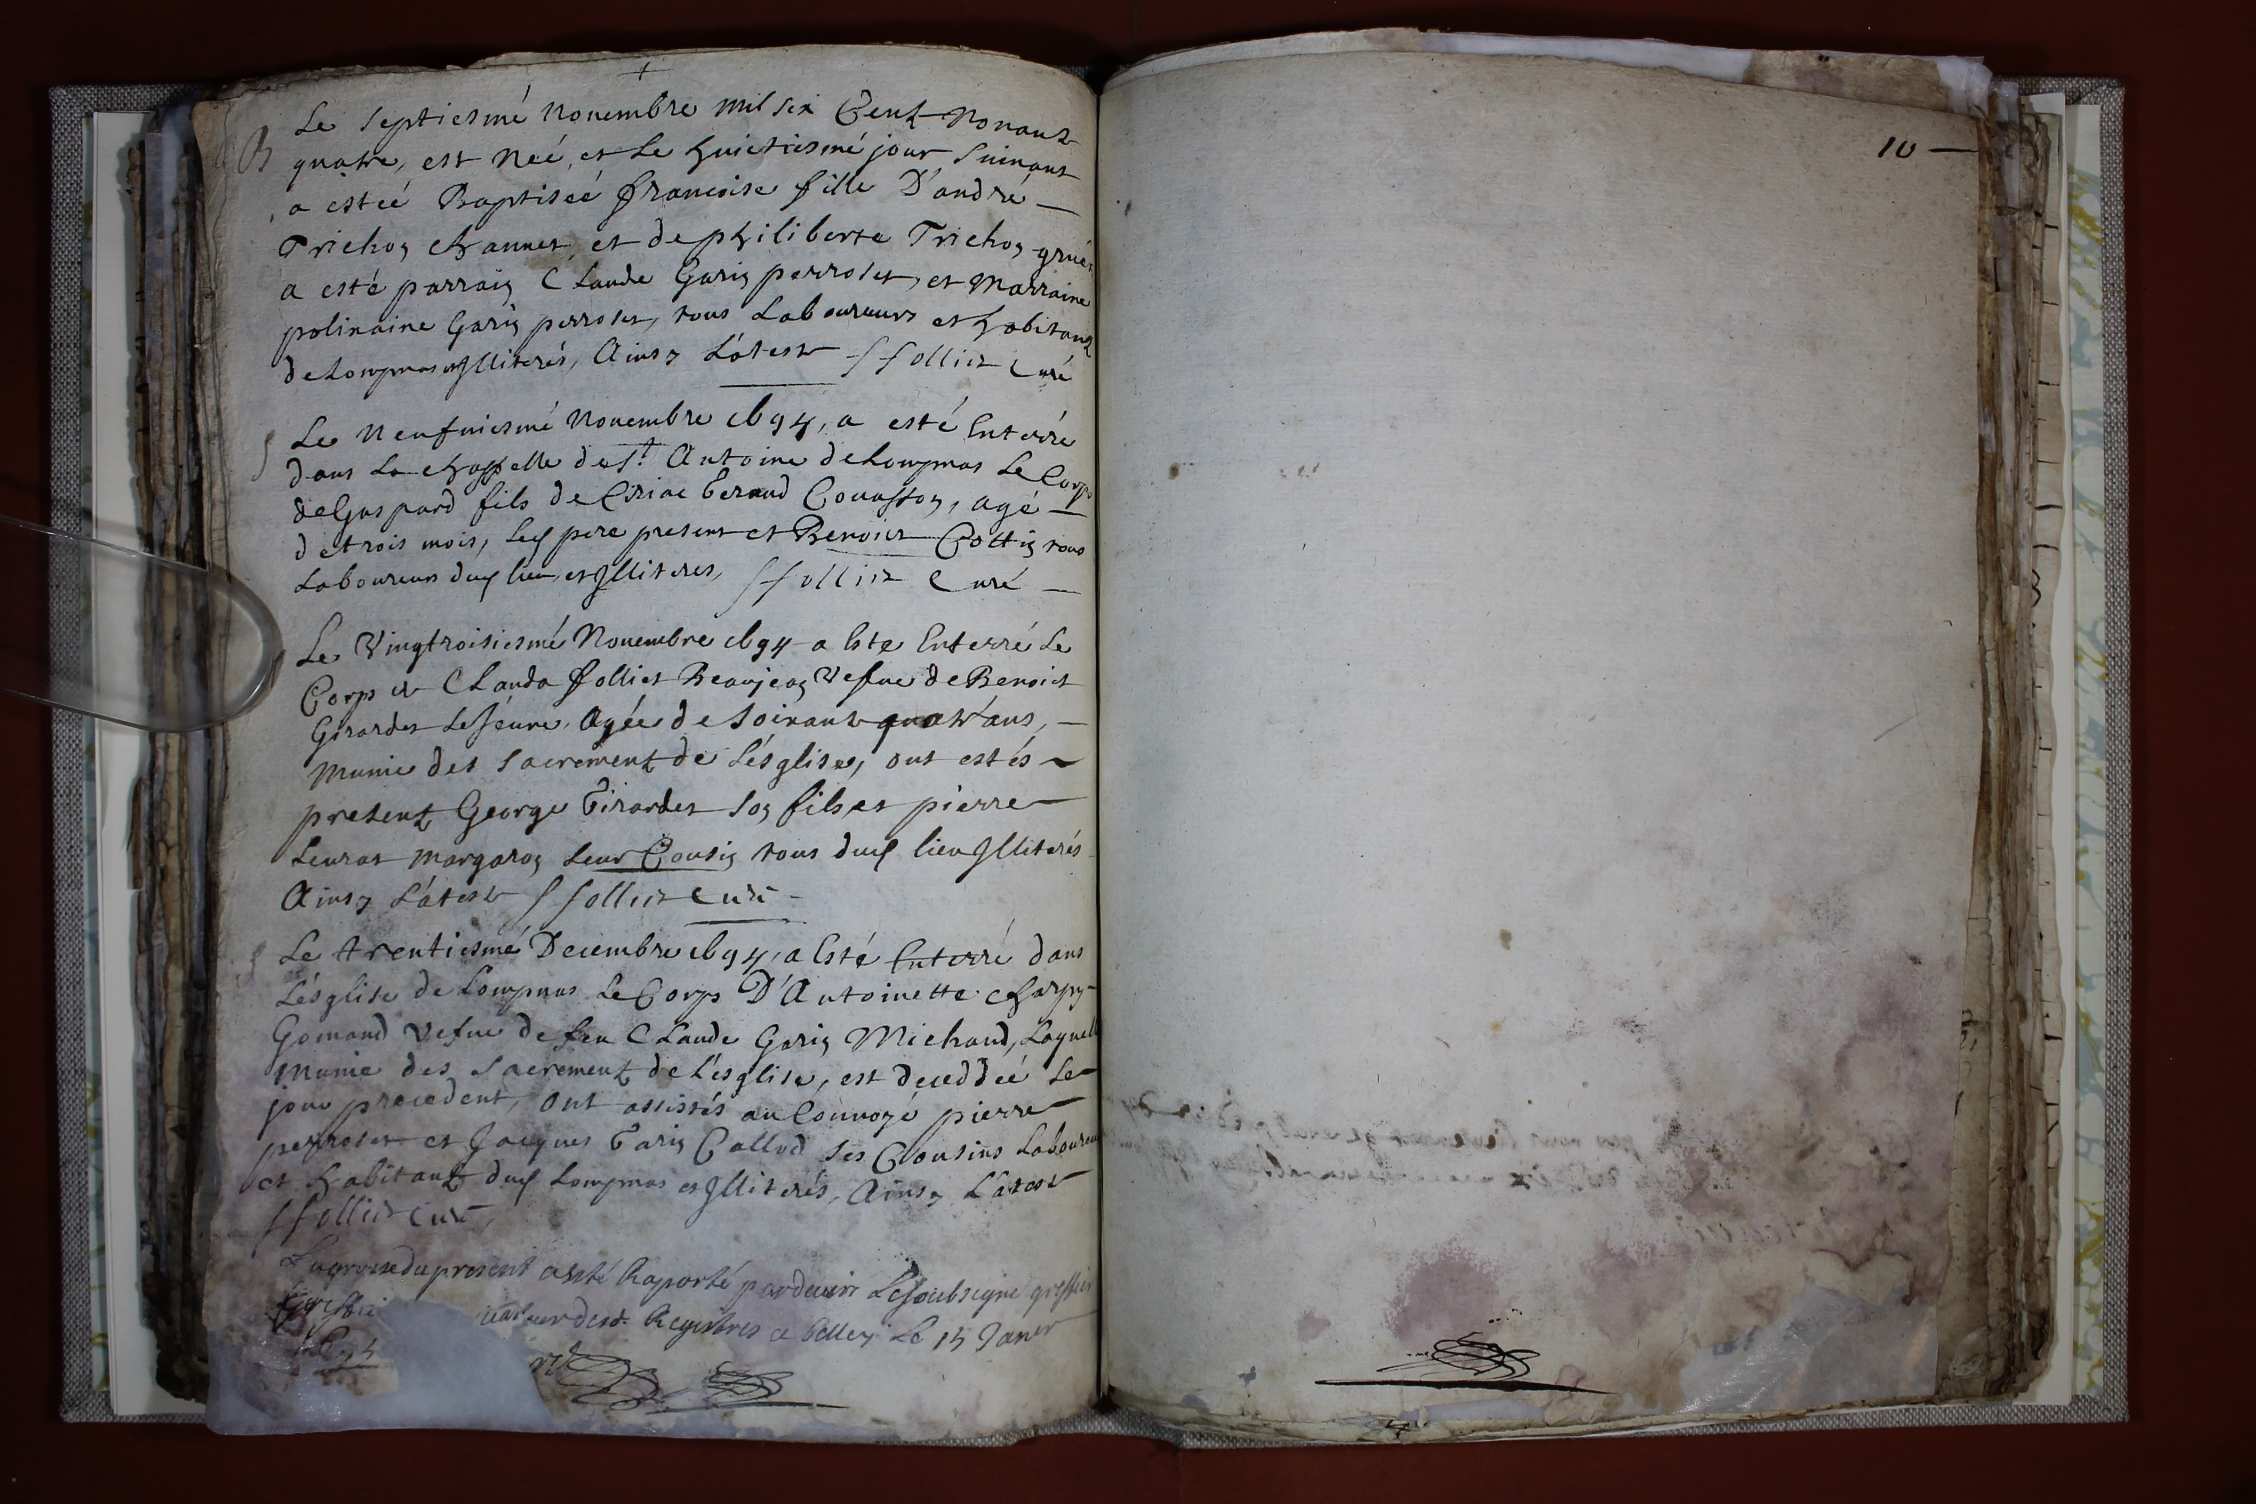 B
Le septiesmé novembre mil six Cent Nonant
quatre, est Neé, et Le huictiesmé jour suivant
a esteé Baptiséé francoise fille D'andré
Trichon Channet et de philiberte Trichon gruet
a esté parrain Claude Garin perroset, et Marraine
polinaire Garin perroset, tous Laboureurs et habitant
de Lompnas et Illiterés, Ainsy L'atest Follict Curé
S
Le Neufviesmé Novembre 1694, a esté Enterré
dans La chappelle de St. Antoine de Lompnas Le Corps
de Gaspard fils de Ciriac Geraud Couasson, agé
de trois mois, led pere present et Benoict Cottin tous
Laboureurs dud lieu, et Illiteres, Follict Curé
Le Vingtroisiesmé Novembre 1694 a Este Enterré Le
Corps de Clauda follict Beaujean Vefve de Benoict
Girardet Le Jeune, Agée de soixante quatr'ans,
munie des sacrement de L'ésglise, ont estés
present George Girardet son fils, et pierre
Leurat margaron Leur Cousin tous dud lieu Illiterés
Ainsy L'atest Follict Curé
S
Le trentiesmé Decembre 1694, a Esté Enterré dans
L'ésglise de Lompnas Le Corps D'Antoinette Charpy
Gomand Vefve de feu Claude Garin Michaud, Laquelle
munie des sacrement de L'ésglise, est deceddeé Le
jour precedent, ont assistés au Convoyé pierre
perroset et Jacques Garin Callod ses Cousins Laboureurs
et habitant dud Lompnas et Illiterés, Ainsy L'atest
Follict Curé,
La grosse du present a esté Raporté pardevers Le soubsigné greffier
des d. Registres a Belley Le 15 Janer
10